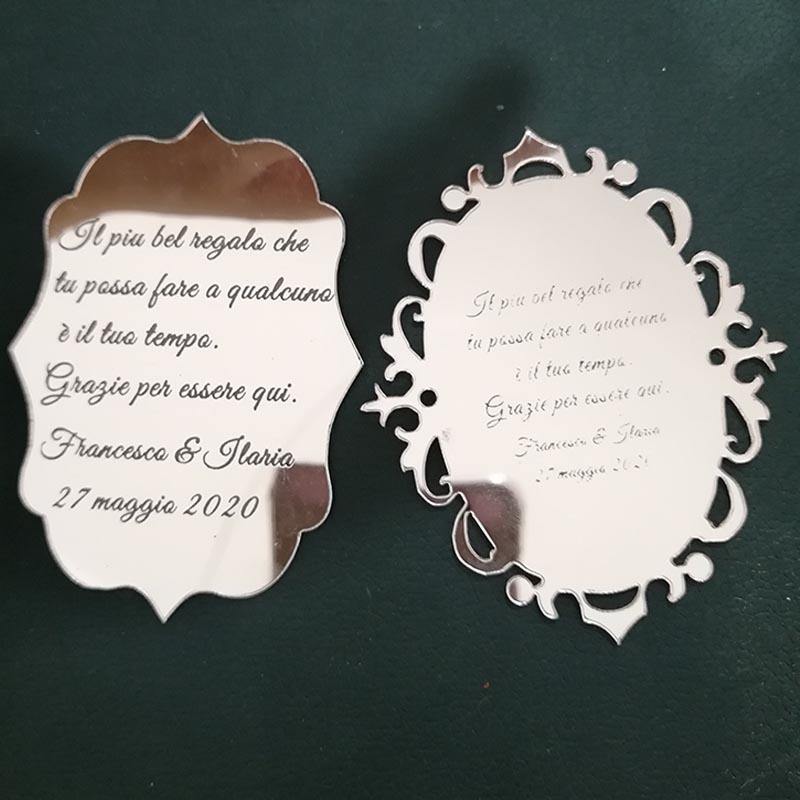 Il piu bel regalo che
tu possa fare a qualcuno
è il tuo tempo.
Grazie per essere qui.
Francesco & Ilaria
27 maggio 2020
Il piu bel regalo che
tu possa fare a qualcuno
è il tuo tempo.
Grazie per essere qui.
Francesco & Ilaria
27 maggio 2020